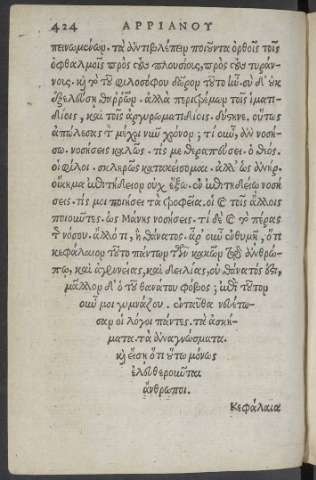 424 ΑΡΡΙΑΝΟΥ
πεινωμένων. τὰ ἀντιβλέπειν ποιοῦντα ὀρθοῖς τοῖς
ὀφθαλμοῖς πρὸς τοὺς πλουσίους, πρὸς τοὺς τυράν-
νους. καὶ τὸ τοῦ φιλοσόφου δῶρον τοῦτο ἦν. σὺ δ' οὐκ
ἐξελεύσῃ θαῤῥῶν. ἀλλὰ περιτρέμων τοῖς ἱματι-
δίοις, καὶ τοῖς ἀργυρωματιδίοις. δύστηνε, οὕτως
ἀπώλεσας τὸν μέχρι νῦν χρόνον; τί οὖν, ἂν νοσή-
σω. νοσήσεις καλῶς. τίς με θεραπεύσει. ὁ Θεός.
οἱ φίλοι. σκληρῶς κατακείσομαι. ἀλλ' ὡς ἀνήρ.
οἴκημα ἐπιτήδειον οὐχ ἕξω. οὐκ ἐπιτηδείῳ νοσή
σεις. τίς μοι ποιήσει τὰ τροφεῖα. οἱ καὶ τοῖς ἄλλοις
ποιοῦντες. ὡς Μάνης νοσήσεις. τί δὲ καὶ τὸ πέρας
τῆς νόσου. ἄλλό τι, ἢ θάνατος. ἆρ' οὖν ἐνθυμῇ, ὅτι
κεφάλαιον τοῦτο πάντων τῶν κακῶν τῷ ἀνθρώ-
πῳ, καὶ ἀγεννείας, καὶ δειλίας, οὐ θάνατός ἐστι,
μᾶλλον δ' ὁ τοῦ θανάτου φόβος; ἐπὶ τοῦτον
οὖν μοι γυμνάζου. ἐνταῦθα νευέτω-
σαν οἱ λόγοι πάντες. τὰ ἀσκή-
ματα. τὰ ἀναγνώσματα.
καὶ εἴσῃ ὅτι οὕτω μόνως
ἐλευθεροῦνται
ἄνθρωποι.
Κεφάλαια